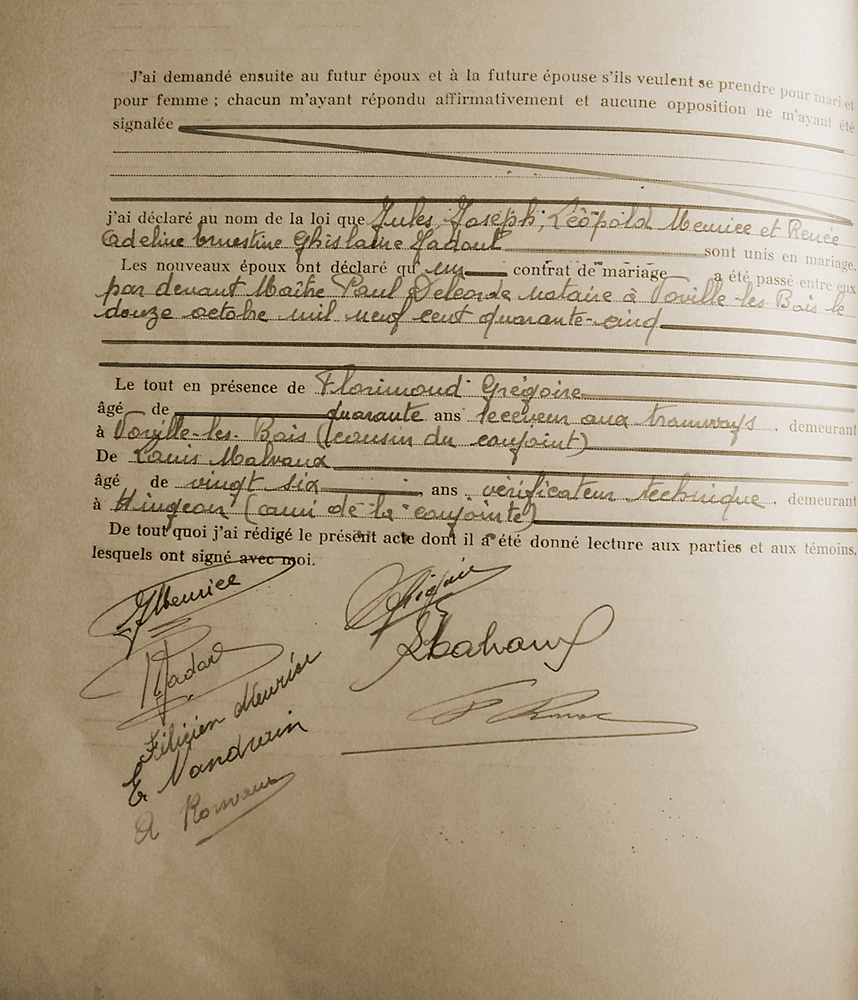 J'ai demandé ensuite au futur époux et à la future épouse s'ils veulent se prendre pour mari et
pour femme ; chacun m'ayant répondu affirmativement et aucune opposition ne m'ayant été
signalée
j'ai déclaré au nom de la loi que Jules, Joseph, Léopold Meurice et Renée
Adeline Ernestine Ghislaine Hadaut sont unis en mariage.
Les nouveaux époux ont déclaré qu'un contrat de mariage a été passé entre eux
par devant Maître Paul notaire à Noville-les-Bois le
douze octobre mil neuf cent quarante-cinq
Le tout en présence de Florimond Grégoire
âgé de quarante ans receveur aux tramways, demeurant
à Noville-les-Bois (cousin du conjoint)
De Louis Malvaux
âgé de vingt six ans, vérificateur technique, demeurant
à Hingeon (ami de la conjointe)
De tout quoi j'ai rédigé le présent acte dont il a été donné lecture aux parties et aux témoins,
lesquels ont signé avec moi.
JMeurice
Félicien Meurice
E Vandrain